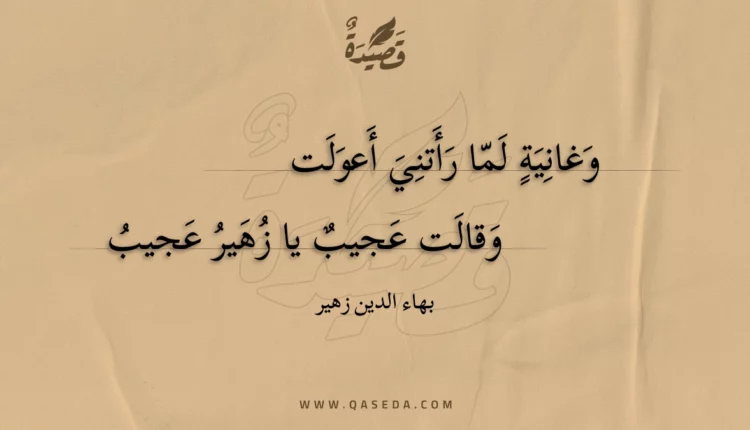 قَصِيدَةٌ
وَغانِيَةٍ لَمّا رَأَتنِيَ أَعوَلَت
وَقالَت عَجيبٌ يا زُهَيرُ عَجيبُ
بهاء الدين زهير
WWW.QASEDA.COM